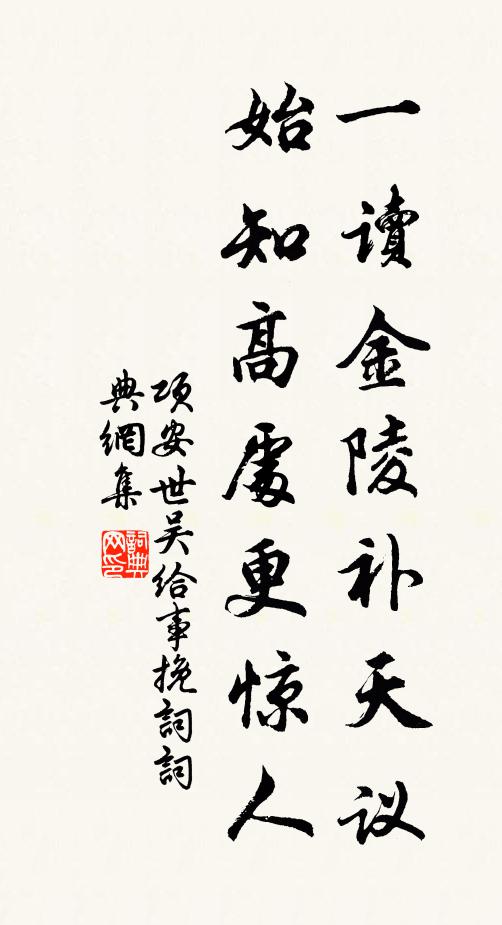 一讀金陵补天议
始知高處更惊人
项安世吴给事挽詞詞
典網集
詞典网印